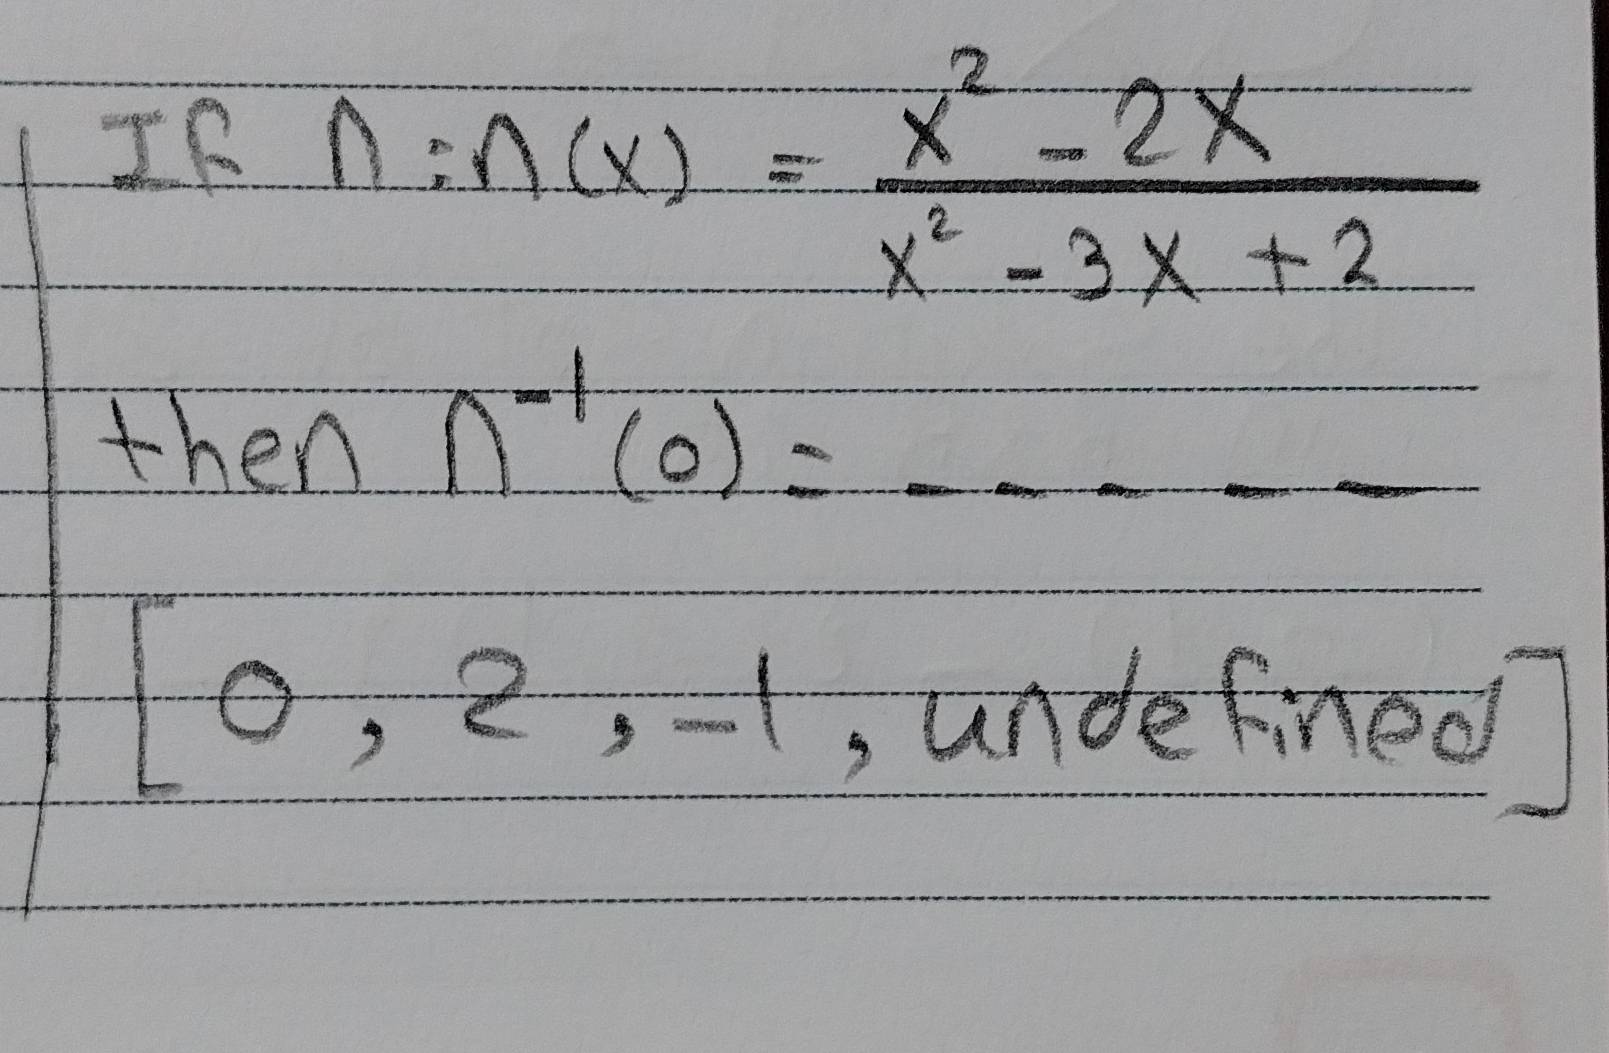 If n : n(x) = x² - 2x / x² - 3x + 2
then n⁻¹(0) = - - - - -
[0, 2, -1, undefined]